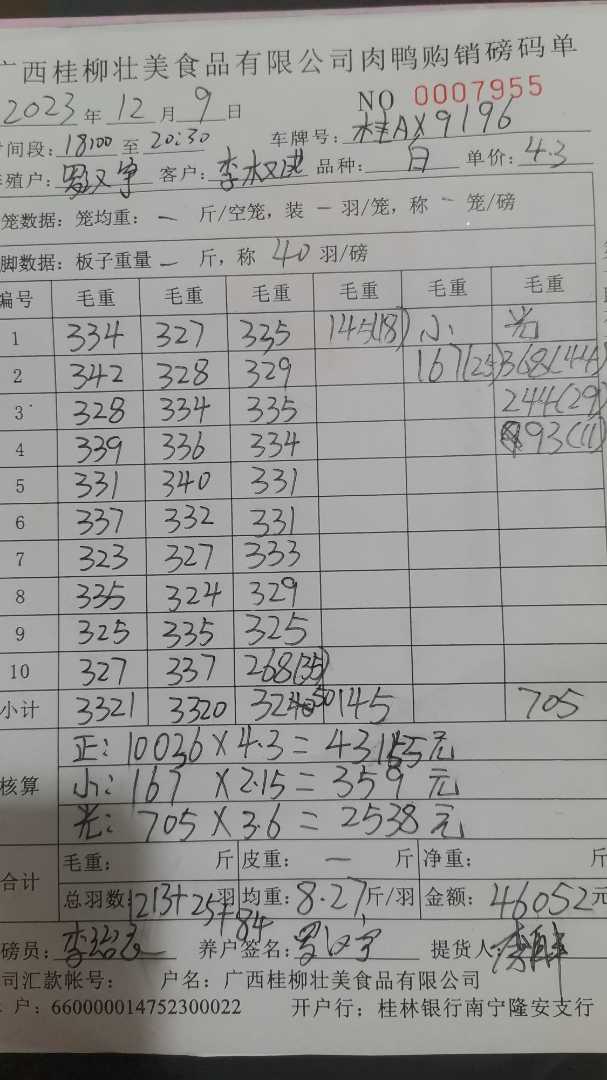 广西桂柳壮美食品有限公司肉鸭购销磅码单
2023年12月9日 NO 0007955
时间段: 18:00 至 20:30 车牌号: 桂AX9196
养殖户: 罗汉宇 客户: 李 品种: 白 单价: 4.3
笼数据: 笼均重: 一 斤/空笼, 装 一 羽/笼, 称 一 笼/磅
脚数据: 板子重量 一 斤, 称 40 羽/磅
编号 毛重 毛重 毛重 毛重 毛重 毛重
1 334 327 335 145(18) 小 光
2 342 328 329 167(25) 368(44)
3 328 334 335 244(29)
4 339 336 334 93(11)
5 331 340 331
6 337 332 331
7 323 327 333
8 335 324 329
9 325 335 325
10 327 337 268(35)
小计 3321 3320 3250 145 705
核算 正: 10036 × 4.3 = 43155元
小: 167 × 2.15 = 359 元
光: 705 × 3.6 = 2538 元
合计 毛重: 斤 皮重: 一 斤 净重: 斤
总羽数: 1213+25+84 羽 均重: 8.27斤/羽 金额: 46052元
磅员: 李 养户签名: 罗汉宇 提货人: 李
司汇款帐号: 户名: 广西桂柳壮美食品有限公司
户: 660000014752300022 开户行: 桂林银行南宁隆安支行